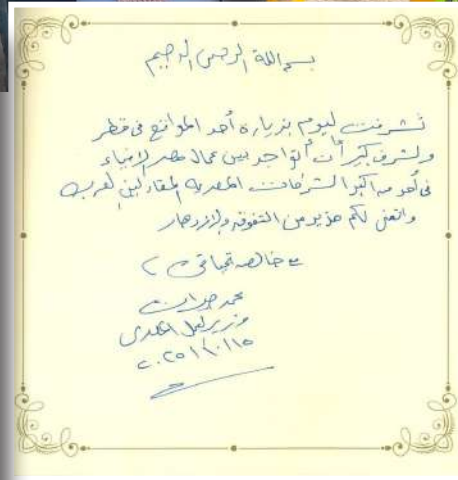 بسم الله الرحمن الرحيم
تشرفت اليوم بزيارة أحد المواقع فى قطر
ولشرف كبير أن أتواجد بين عمال مصر الاوفياء
فى أحد من أكبر الشركات المصرية المقاولين العرب
واتمنى لكم مزيد من التفوق والازدهار
مع خالص تحياتى
محمد جبران
وزير العمل المصرى
2025/10/15